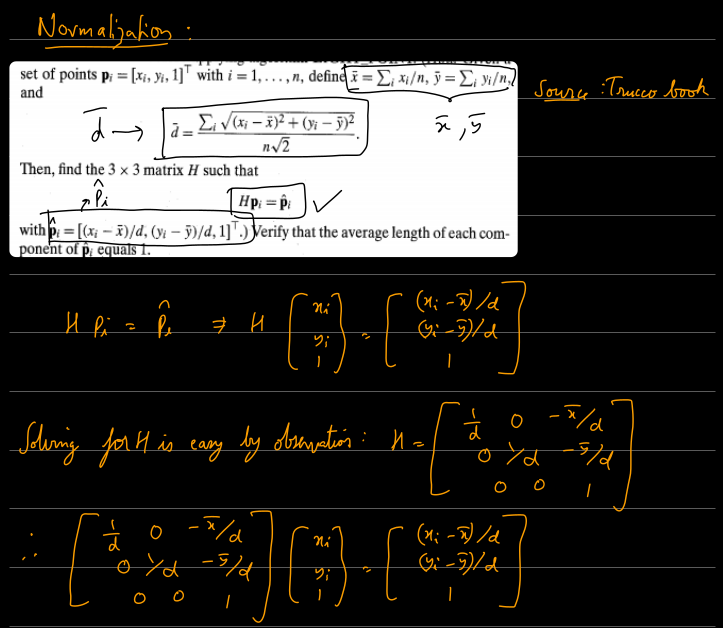 Normalization :
set of points pᵢ = [xᵢ, yᵢ, 1]ᵀ with i = 1, . . . , n, define x̄ = Σᵢ xᵢ/n, ȳ = Σᵢ yᵢ/n,
and
Source : Trucco book
d̄ → d̄ = Σᵢ √(xᵢ − x̄)² + (yᵢ − ȳ)² / n√2 .
x̄ , ȳ
Then, find the 3 × 3 matrix H such that
p̂ᵢ
Hpᵢ = p̂ᵢ ✓
with p̂ᵢ = [(xᵢ − x̄)/d, (yᵢ − ȳ)/d, 1]ᵀ.) Verify that the average length of each com-
ponent of p̂ᵢ equals 1.
H Pᵢ = P̂ᵢ ⇒ H [xᵢ yᵢ 1] = [(xᵢ − x̄)/d (yᵢ − ȳ)/d 1]
Solving for H is easy by observation : H = [1/d 0 −x̄/d 0 1/d −ȳ/d 0 0 1]
∴ [1/d 0 −x̄/d 0 1/d −ȳ/d 0 0 1] [xᵢ yᵢ 1] = [(xᵢ − x̄)/d (yᵢ − ȳ)/d 1]